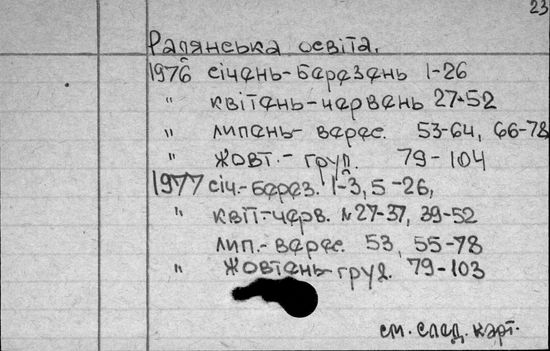 23
Радянська освіта.
1976 січень-березень 1-26
" квітень-червень 27-52
" липень- верес. 53-64, 66-78
" жовт.- груд. 79-104
1977 січ.-берез. 1-3, 5-26,
" квіт-черв. №27-37, 39-52
лип.- верес. 53, 55-78
" жовтень-груд. 79-103
см. след. карт.